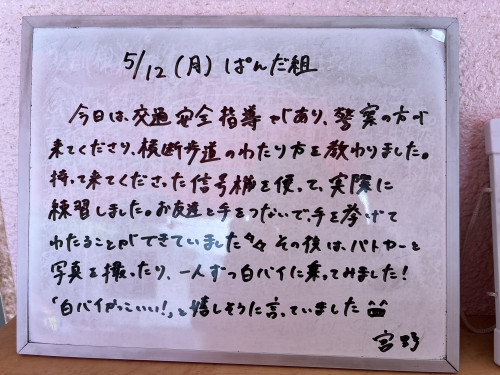 5/12(月)ぱんだ組
今日は、交通安全指導があり、警察の方が
来てくださり、横断歩道のわたり方を教わりました。
持って来てくださった信号機を使って、実際に
練習しました。お友達と手をつないで、手を挙げて
わたることができていました✨その後は、パトカーと
写真を撮ったり、一人ずつ白バイに乗ってみました!
「白バイかっこいい!」と嬉しそうに言っていました
宮野